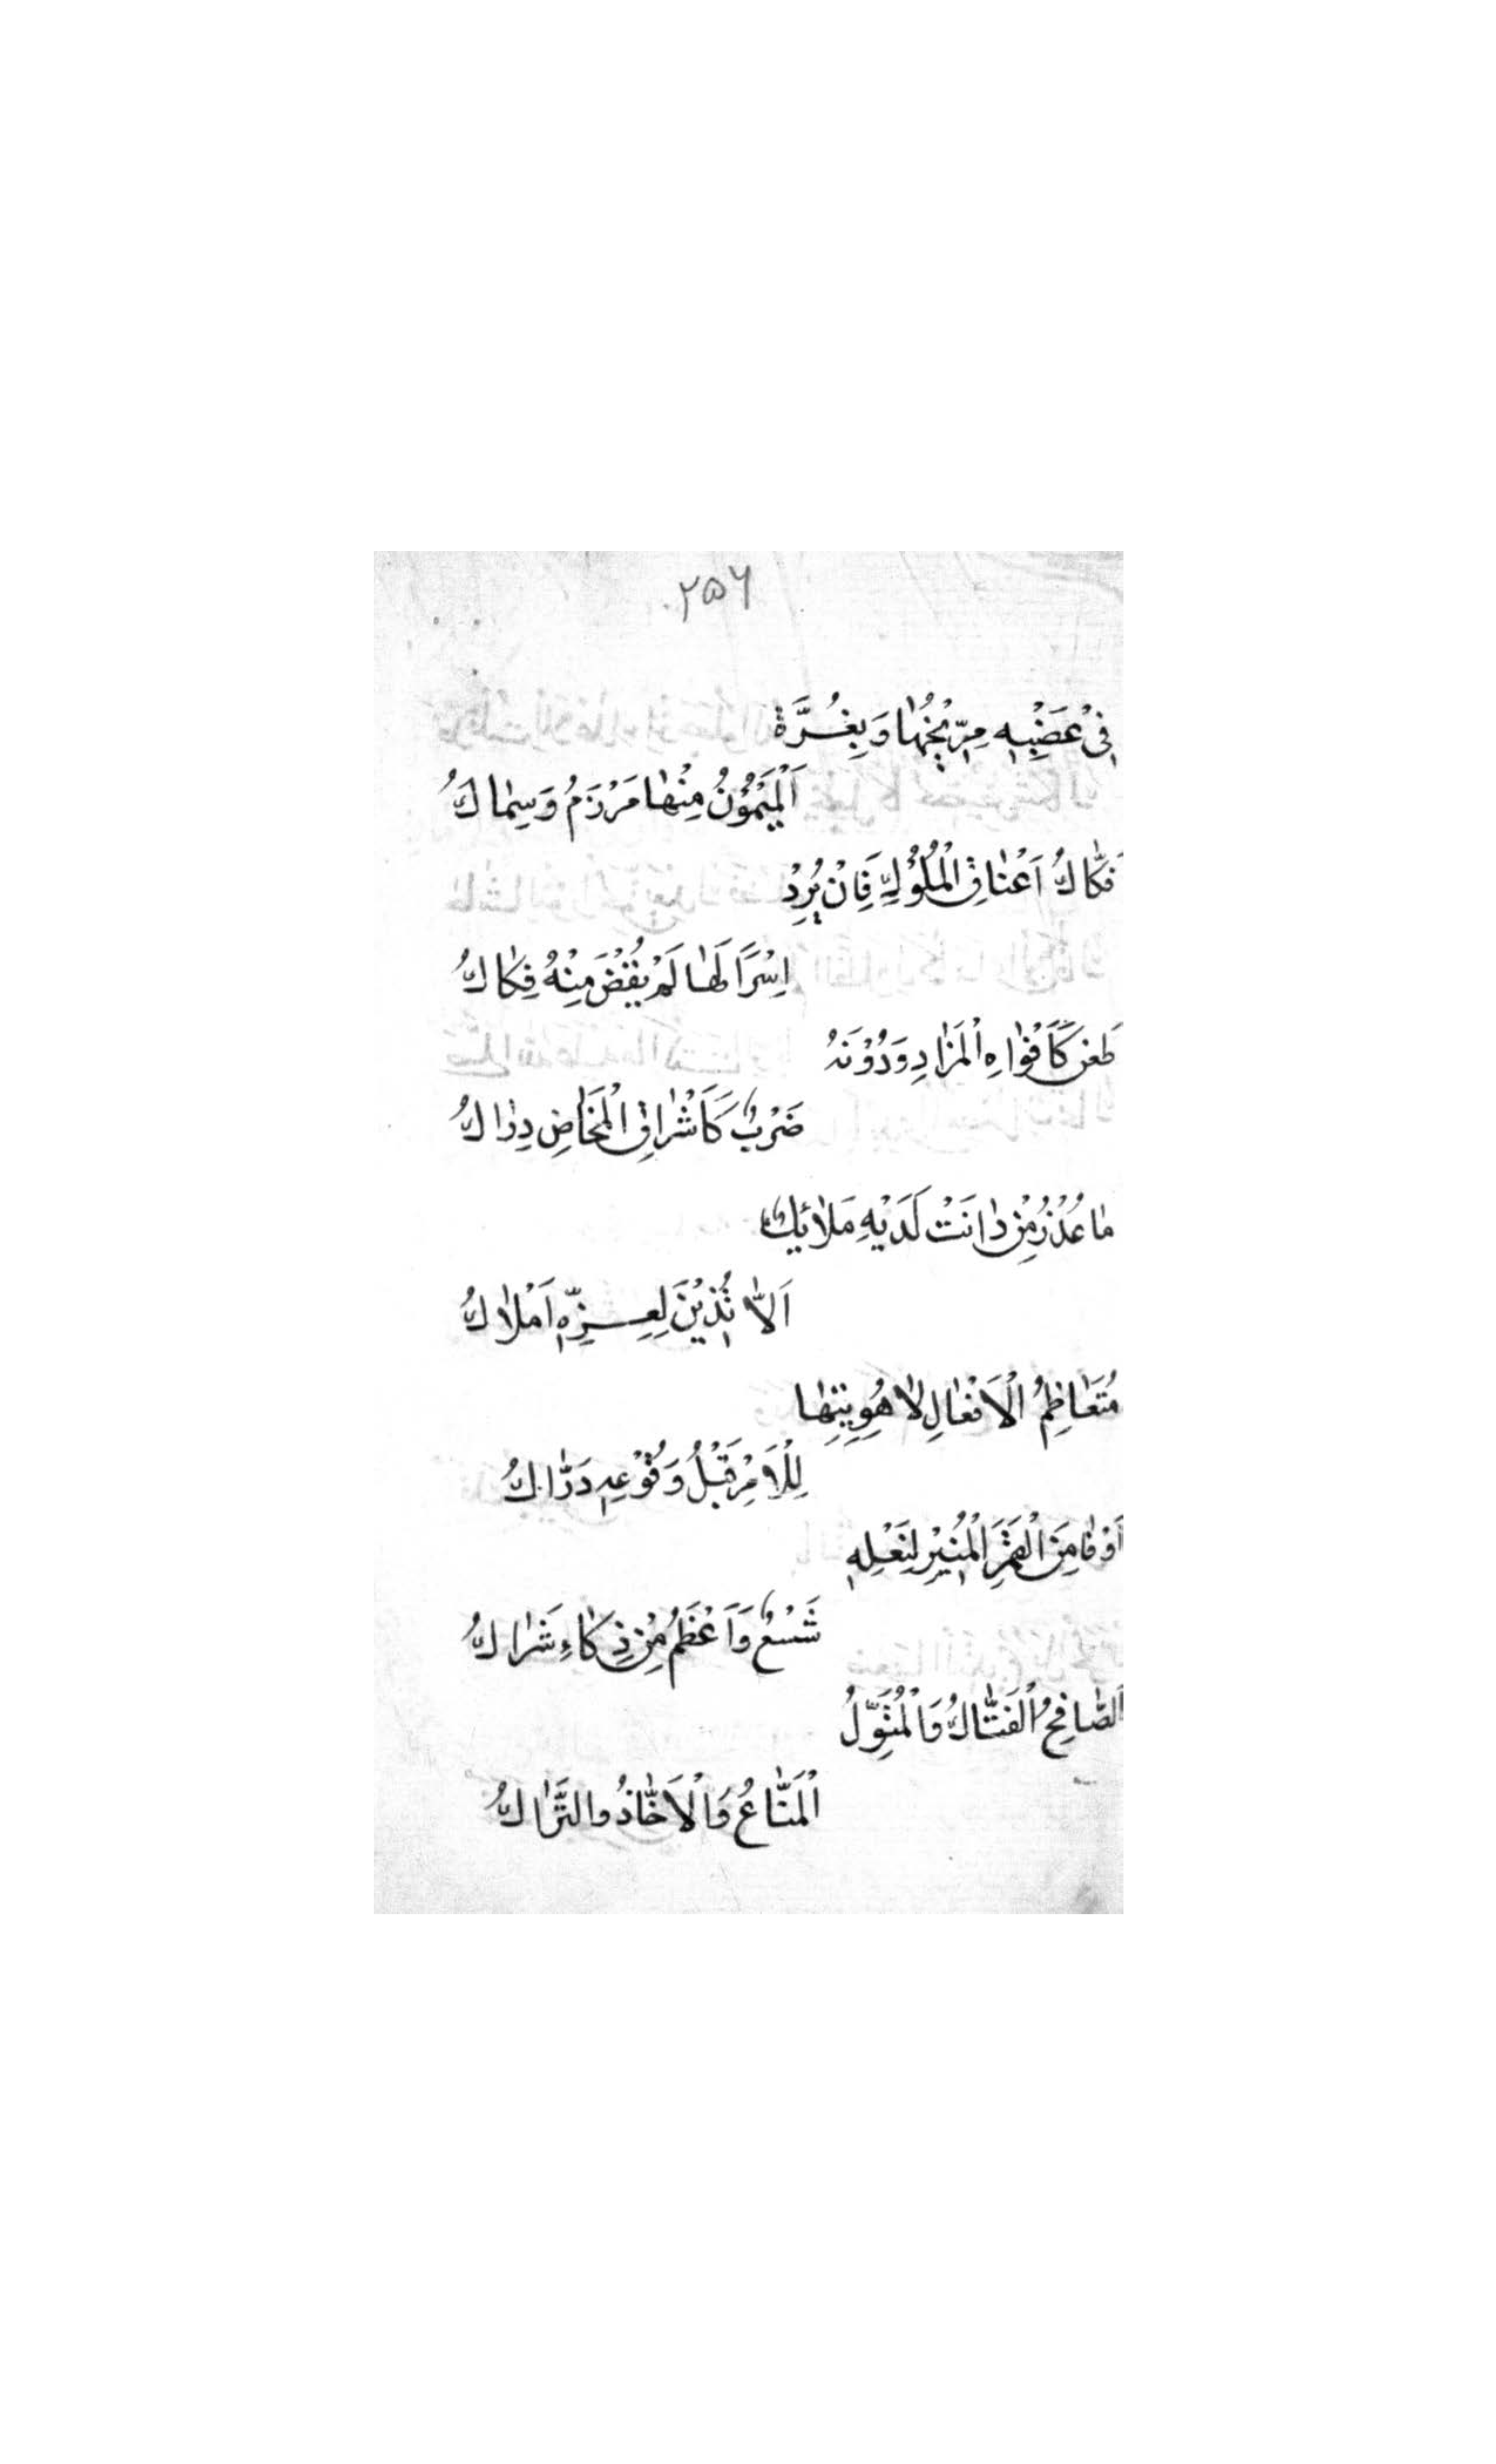 ٢٥٦
فِىْ عَضْبِهٖ مِرِّيْخُهٰا وَبِغُرَّةْ
اَلْمَيْمُوْنُ مِنْهٰا مَرْزَمُ وَسِمٰاكُ
فَكّٰاكُ اَعْنٰاقِ الْمُلُوْكِ فَاِنْ يُرِدْ
اِسْرًا لَهٰا لَمْ يُقْضَ مِنْهُ فِكٰاكُ
طَعْن كَاَفْوٰاهِ الْمَزٰادِ وَدُوْنَهُ
ضَرْبٌ كَاَشْرٰاقِ الْمَخٰاضِ دِرٰاكُ
مٰا عُذْرُ مَنْ دٰانَتْ لَدَيْهِ مَلٰائِكٌ
اَلّٰا تُذِيْنَ لِعِزِّهٖ اَمْلٰاكُ
مُتَعٰاظِمُ الْاَفْعٰالِ لٰا هُوِيْنِهٰا
لِلْاَمْرِ قَبْلُ وُقُوْعِهٖ دَرّٰاكُ
اَوْفٰا مِنَ الْقَمَرِ الْمُنِيْرِ لِنَعْلِهٖ
شَسْعٌ وَاَعْظَمُ مِنْ ذِكٰاءِ شَرٰاكُ
الصّٰافِحُ الْفَتّٰاكُ وَالْمُنَوِّلُ
الْمَنّٰاعُ وَالْاَخّٰاذُ والتَّرٰاكُ